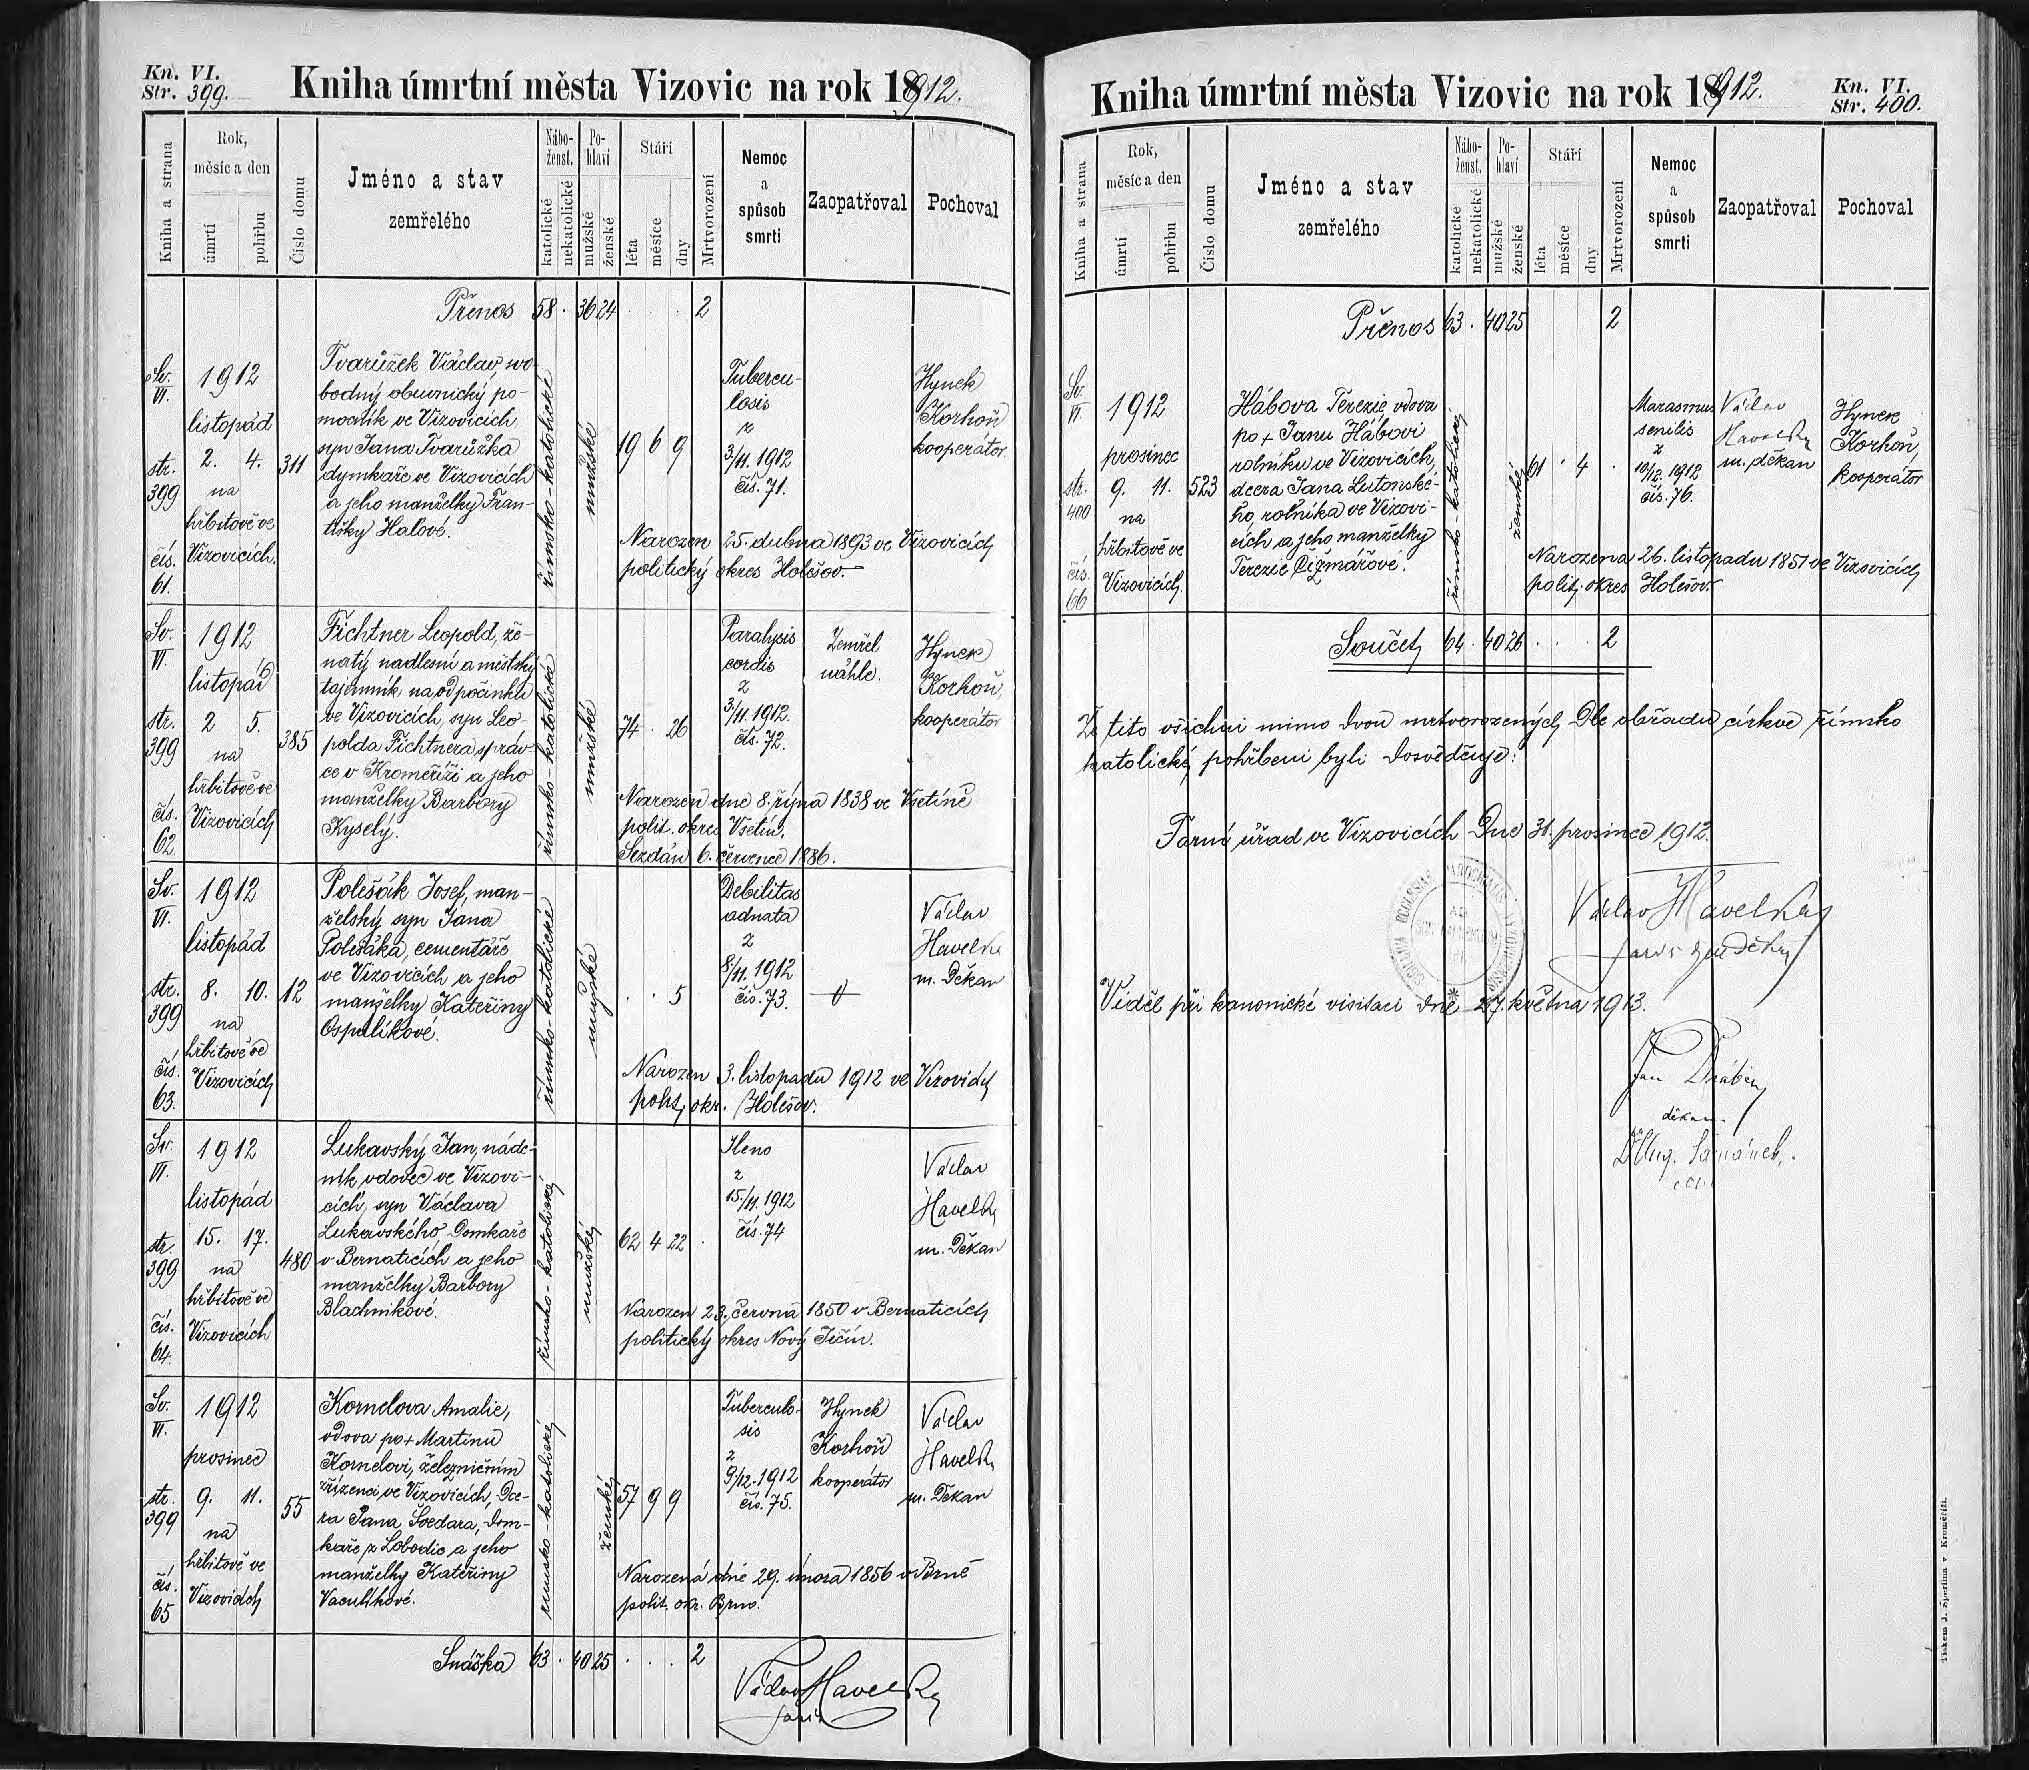 Kn. VI.
Str. 399.
Kniha úmrtní města Vizovic na rok 1912.
Kniha a strana
Rok,
měsíc a den
úmrtí
pohřbu
Číslo domu
Jméno a stav
zemřelého
Nábo-
ženst.
katolické
nekatolické
Po-
hlaví
mužské
ženské
Stáří
léta
měsíce
dny
Mrtvorození
Nemoc
a
spůsob
smrti
Zaopatřoval
Pochoval
Přenos 58 . 36 24 . . . 2
Sv.
VI.
str.
399
čís.
61.
1912
listopád
2. 4.
na
hřbitově ve
Vizovicích.
311
Tvarůžek Václav, svo-
bodný obuvnický po-
mocník ve Vizovicích
syn Jana Tvarůžka
dýmkaře ve Vizovicích
a jeho manželky Fran-
tišky Halové.
římsko-katolické
mužské
19 6 9
Tubercu-
losis
z
3/11. 1912
čís. 71.
Hynek
Korhoň
kooperátor
Narozen 25. dubna 1893 ve Vizovicích
politický okres Holešov.
Sv.
VI.
str.
399
čís.
62.
1912
listopád
2 5.
na
hřbitově ve
Vizovicích
385
Fichtner Leopold, že-
natý nadlesní a městský
tajemník na odpočinku
ve Vizovicích, syn Leo-
polda Fichtnera správ-
ce v Kroměříži a jeho
manželky Barbory
Kyselý.
římsko-katolické
mužské
74 . 26
Paralysis
cordis
z
3/11. 1912.
čís. 72.
Zemřel
náhle.
Hynek
Korhoň
kooperátor
Narozen dne 8. října 1838 ve Vsetíně
polit. okres Vsetín.
Sezdán 6. července 1886.
Sv.
VI.
str.
399
čís.
63.
1912
listopád
8. 10.
na
hřbitově ve
Vizovicích
12
Polešák Josef, man-
želský syn Jana
Polešáka, cementáře
ve Vizovicích a jeho
manželky Kateřiny
Ospalíkové.
římsko-katolické
mužské
. . 5
Debilitas
adnata
z
8/11. 1912
čís. 73.
Václav
Havelka
m. Děkan
Narozen 3. listopadu 1912 ve Vizovicích
polit. okr. Holešov.
Sv.
VI.
str.
399
čís.
64.
1912
listopád
15. 17.
na
hřbitově ve
Vizovicích
480
Lukavský Jan, náde-
ník, vdovec ve Vizovi-
cích, syn Václava
Lukavského, Domkaře
v Bernaticích a jeho
manželky Barbory
Blachnikové.
římsko-katolické
mužské
62 4 22 .
Ileno
z
15/11. 1912
čís. 74
Václav
Havelka
m. Děkan
Narozen 23. června 1850 v Bernaticích
politický okres Nový Jičín.
Sv.
VI.
str.
399
čís.
65
1912
prosinec
9. 11.
na
hřbitově ve
Vizovicích
55
Kornelova Amalie,
vdova po + Martinu
Kornelovi, železničním
zřízenci ve Vizovicích, Dce-
ra Jana Švedara, dom-
kaře z Lobodic a jeho
manželky Kateřiny
Vaculíkové.
římsko-katolické
ženské
57 9 9
Tuberculo-
sis
z
9/12. 1912
čís. 75.
Hynek
Korhoň
kooperátor
Václav
Havelka
m. Děkan
Narozená dne 29. února 1856 v Brně
polit. okr. Brno.
Snáška 63 . 40 25 . . . 2
Václav Havelka
farář
Kniha úmrtní města Vizovic na rok 1912.
Kn. VI.
Str. 400.
Kniha a strana
Rok,
měsíc a den
úmrtí
pohřbu
Číslo domu
Jméno a stav
zemřelého
Nábo-
ženst.
katolické
nekatolické
Po-
hlaví
mužské
ženské
Stáří
léta
měsíce
dny
Mrtvorození
Nemoc
a
spůsob
smrti
Zaopatřoval
Pochoval
Přenos 63 . 40 25 2
Sv.
VI.
str.
400
čís.
66
1912
prosinec
9. 11.
na
hřbitově ve
Vizovicích.
523
Hábova Terezie, vdova
po + Janu Hábovi
rolníku ve Vizovicích,
dcera Jana Lutonské-
ho, rolníka ve Vizovi-
cích a jeho manželky
Terezie Čižmářové.
římsko-katolické
ženské
61 . 4 .
Marasmus
senilis
z
10/12. 1912
čís. 76.
Václav
Havelka
m. děkan
Hynek
Korhoň,
kooperátor
Narozena 26. listopadu 1851 ve Vizovicích
polit. okres Holešov.
Součet 64 . 40 26 . . . 2
Že tito všichni mimo dvou mrtvorozených Dle obřadu církve římsko
katolické pohřbeni byli dosvědčuje:
Farní úřad ve Vizovicích Dne 31. prosince 1912.
Václav Havelka
Viděl při kanonické visitaci dne 27. května 1913.
Jan
děkan.
Tiskem J. Šperlína v Kroměříži.